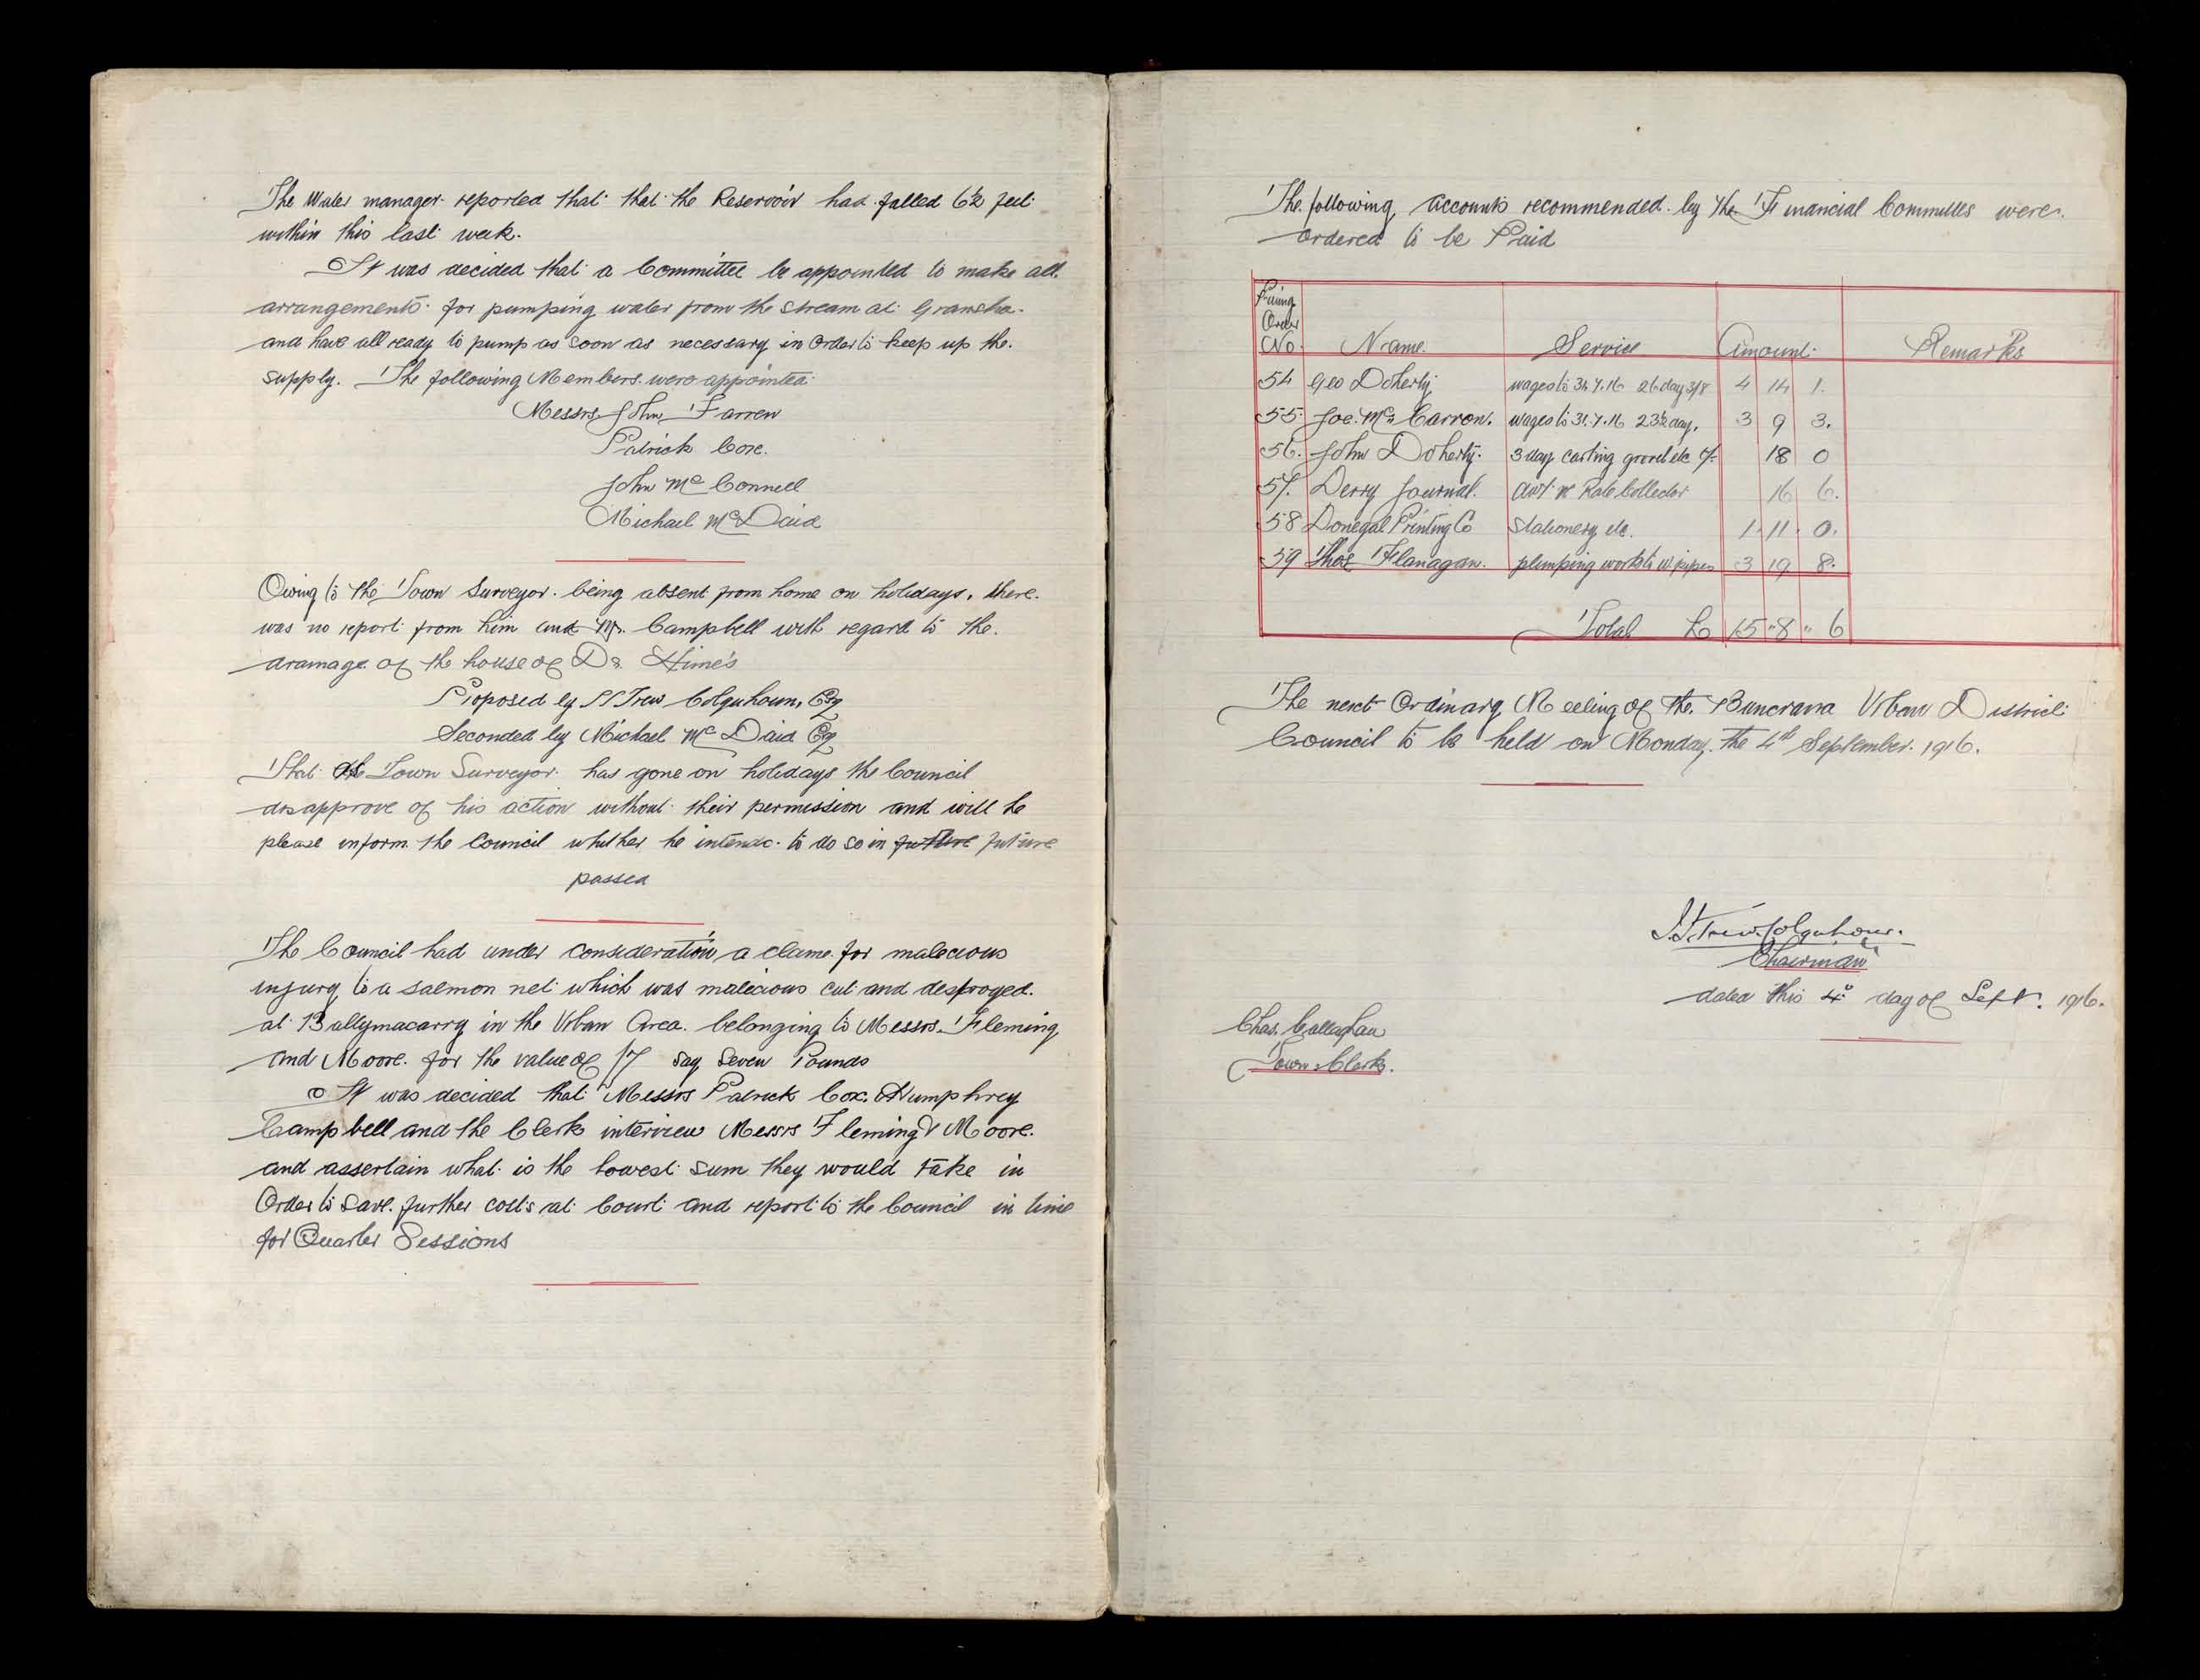 The Water manager reported that that the Reservoir had falled 6½ feet
within this last week.
It was decided that a Committee be appointed to make all
arrangements for pumping water from the stream at Gransha
and have all ready to pump as soon as necessary in Order to keep up the
supply. The following Members were appointed
Messrs John Farren
Patrick Coxe.
John McConnell
Michael McDaid
Owing to the Town Surveyor being absent from home on holidays, there
was no report from him and Mr. Campbell with regard to the
drainage of the house of Dr. Hime's
Proposed by Trew Colquhoun, Esq
Seconded by Michael McDaid Esq
That the Town Surveyor has gone on holidays the Council
disapprove of his action without their permission and will he
please inform the Council whether he intends to do so in future future
passed
The Council had under consideration a clame for malecious
injury to a salmon net which was malecious cut and destroyed
at Ballymacarry in the Urban Area belonging to Messrs Fleming
and Moore for the value of £7 say Seven Pounds
It was decided that Messrs Patrick Cox, Humphrey
Campbell and the Clerk interview Messrs Fleming & Moore
and assertain what is the lowest sum they would take in
Order to save further costs at Court and report to the Council in time
for Quarter Sessions
The following accounts recommended by the Financial Committes were
ordered to be Paid
Paying
Order
No. Name. Service Amount Remarks
54 Geo Doherty wages to 31.7.16 26 day 3/8 4 14 1.
55 Joe. McCarron. wages to 31.7.16 23½ day. 3 9 3.
56. John Doherty. 3 day carting gravel etc 18 0
57. Derry Journal. Advt re Rate Collector 16 6.
58 Donegal Printing Co Stationery etc. 1 11 0.
59 Thos Flanagan. plumping work to w pipes 3 19 8.
Total £ 15 " 8 " 6
The next Ordinary Meeting of the Buncrana Urban District
Council to be held on Monday the 4th September 1916.
Trew Colquhoun.
Chairman
dated this 4th day of Sept. 1916.
Chas. Callaghan
Town Clerk.